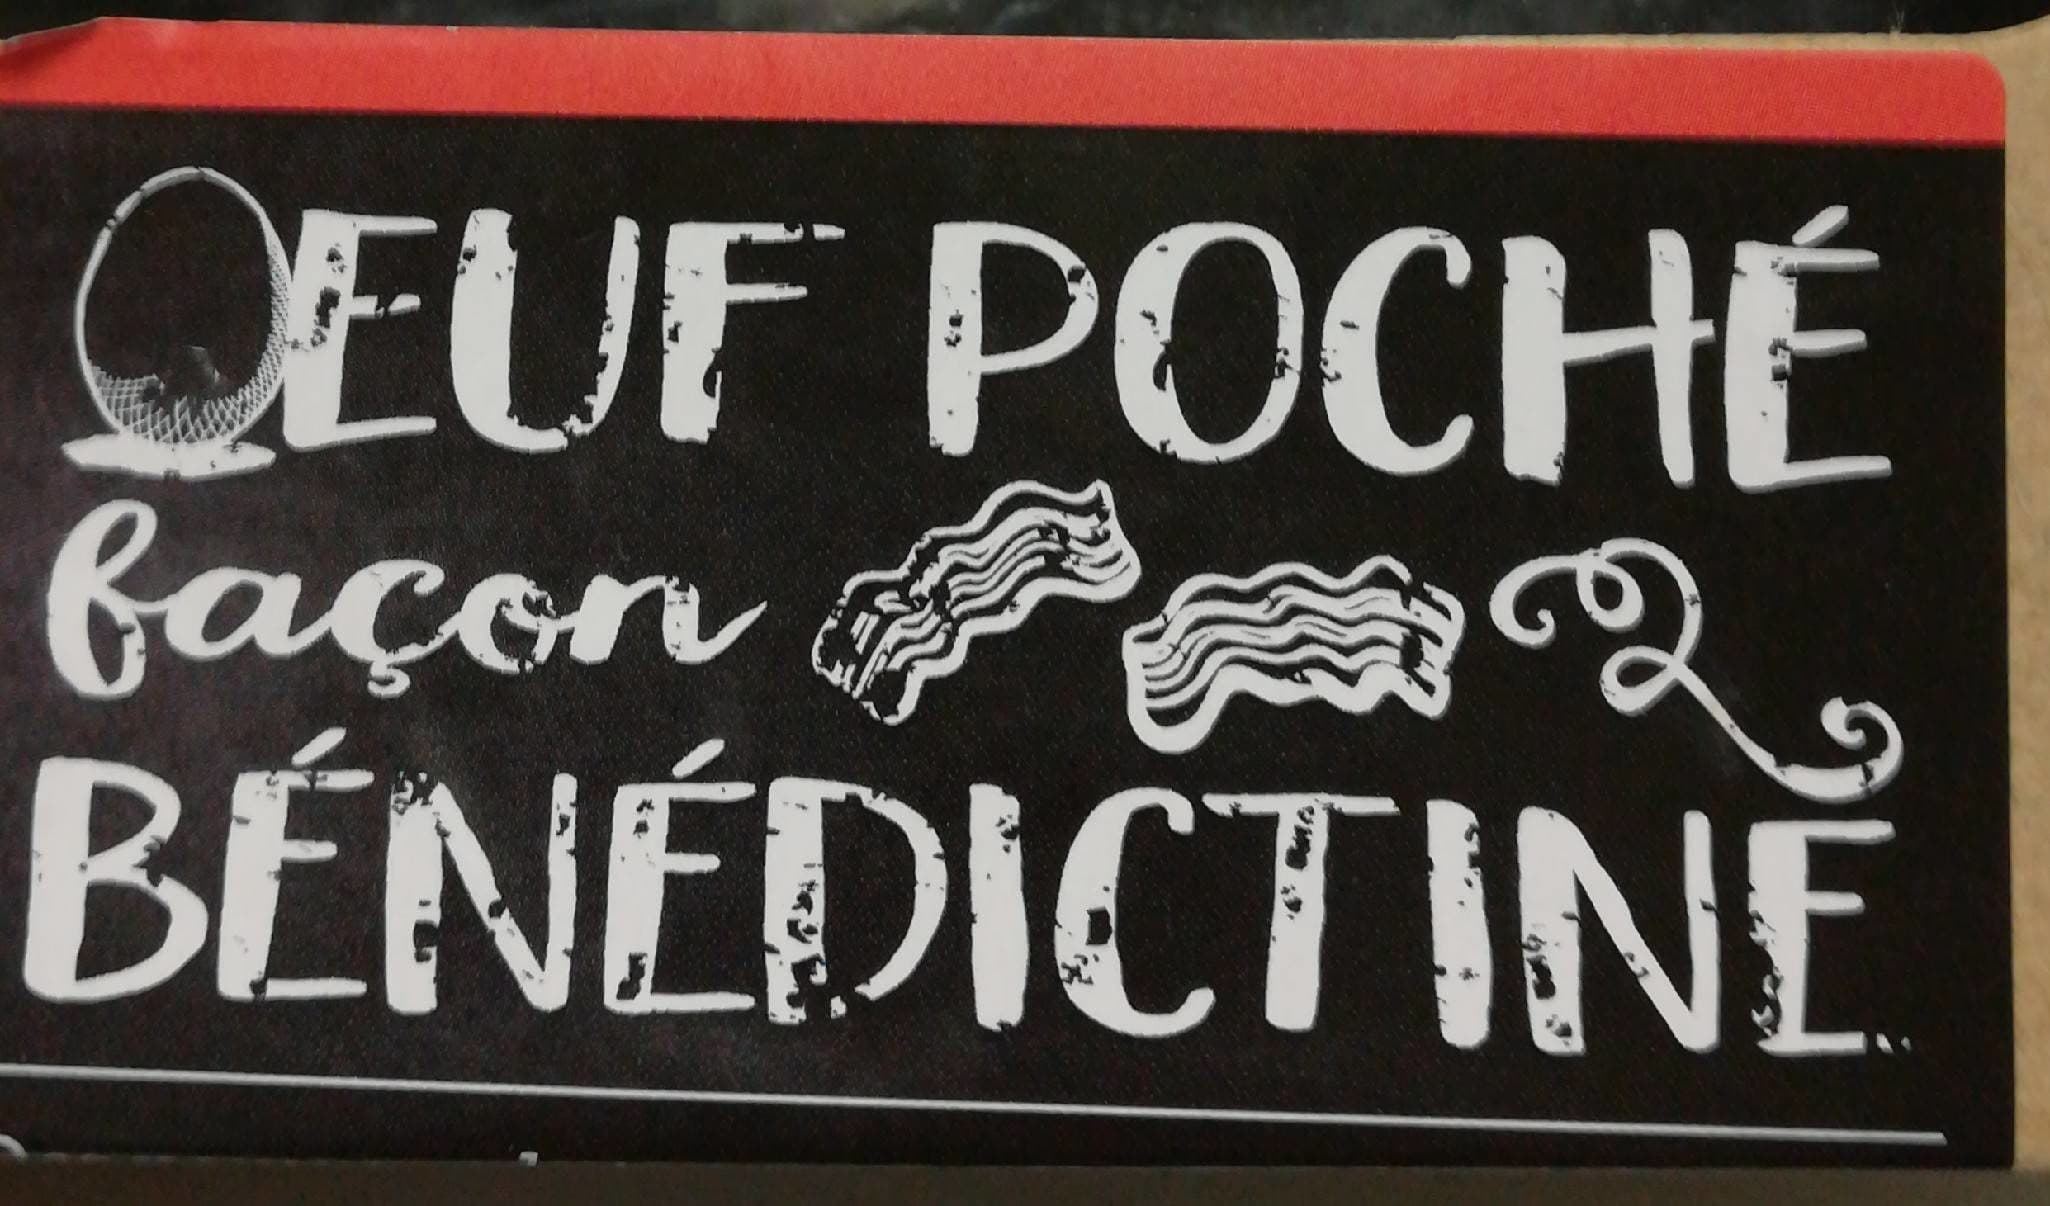 ŒUF POCHÉ
façon
BÉNÉDICTINE